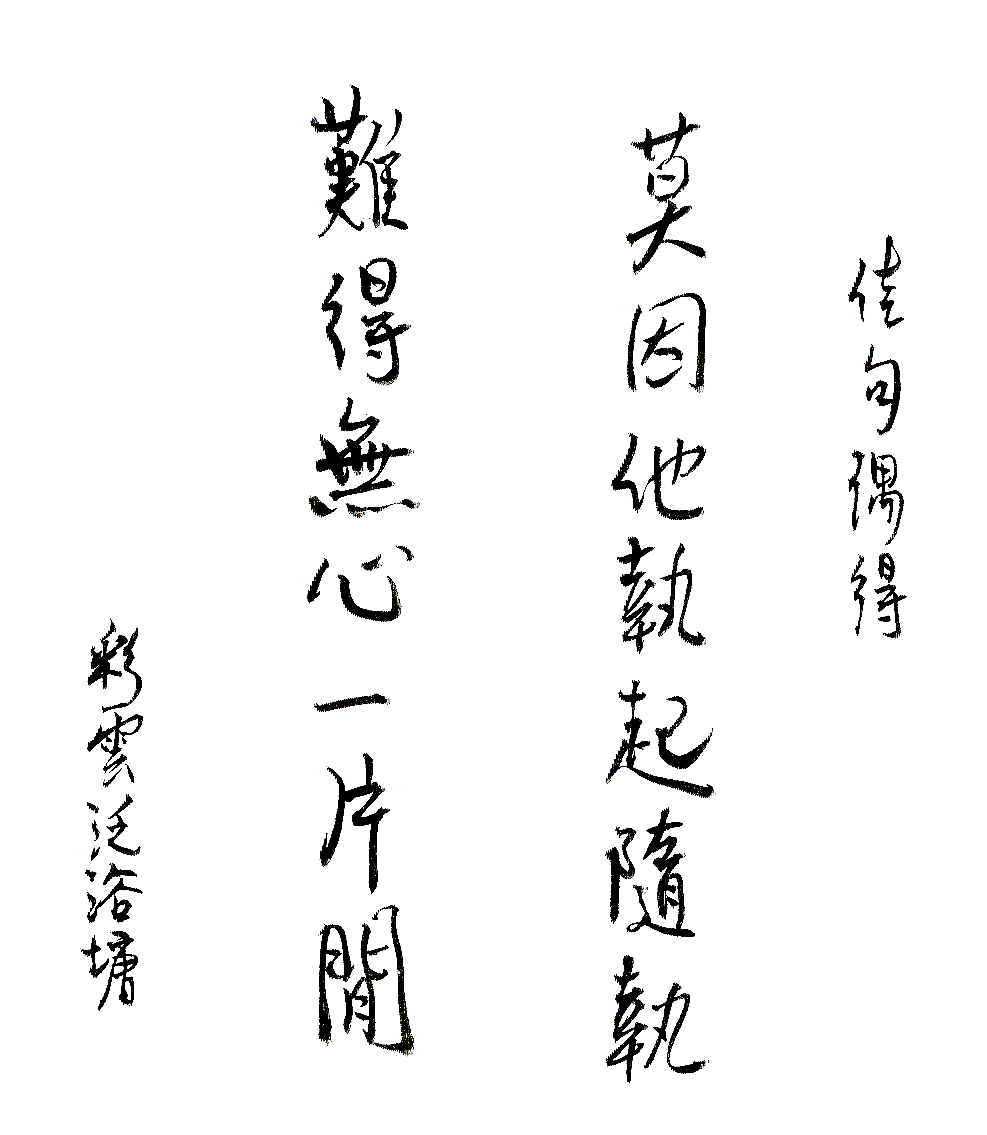 佳句偶得
莫因他執起隨執
難得無心一片閒
彩雲泛浴墉